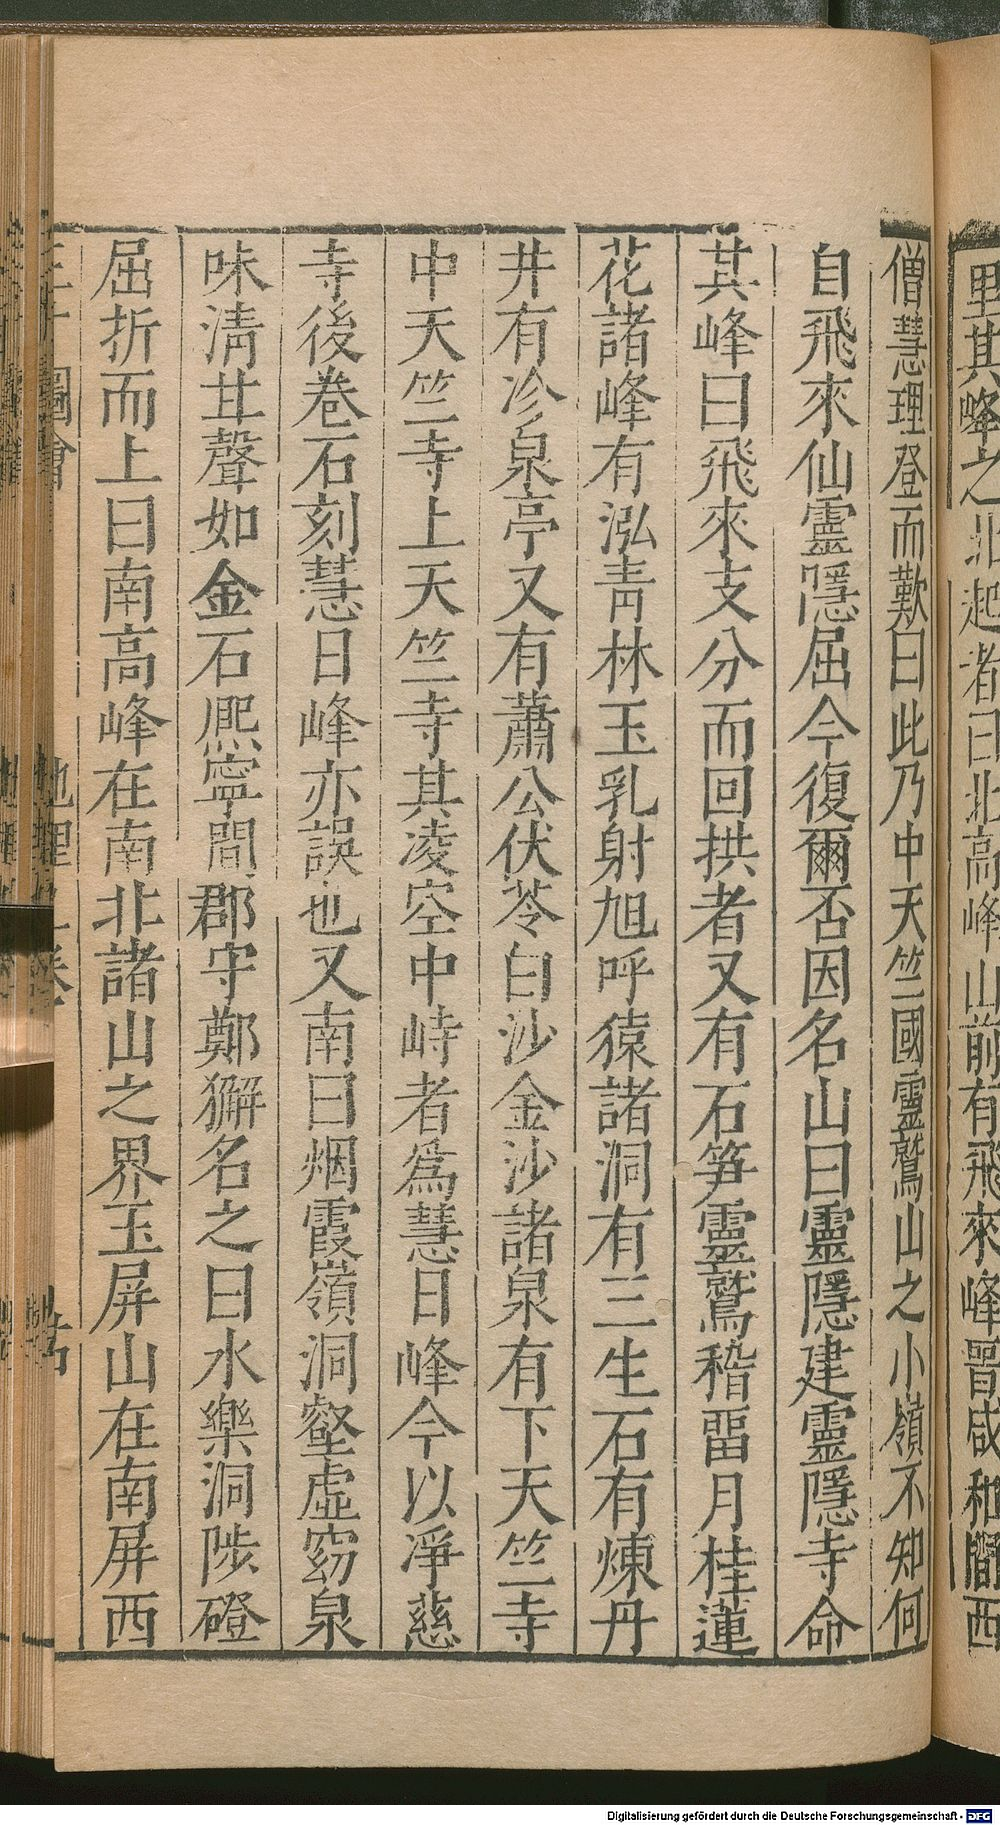 里其峰之北起者曰北高峰山前有飛來峰晉咸和間西
僧慧理登而歎曰此乃中天竺國靈鷲山之小嶺不知何
自飛來仙靈隱屈今復爾否因名山曰靈隱建靈隱寺命
其峰曰飛來支分而回拱者又有石笋靈鷲稽畱月桂蓮
花諸峰有泓青林玉乳射旭呼猿諸洞有三生石有煉丹
井有冷泉亭又有蕭公伏苓白沙金沙諸泉有下天竺寺
中天竺寺上天竺寺其凌空中峙者爲慧日峰今以淨慈
寺後卷石刻慧日峰亦誤也又南曰烟霞嶺洞壑虛窈泉
味清甘聲如金石熈寧間郡守鄭獬名之曰水樂洞陟磴
屈折而上曰南高峰在南北諸山之界玉屏山在南屏西
圖會 地理 卷
Digitalisierung gefördert durch die Deutsche Forschungsgemeinschaft - DFG